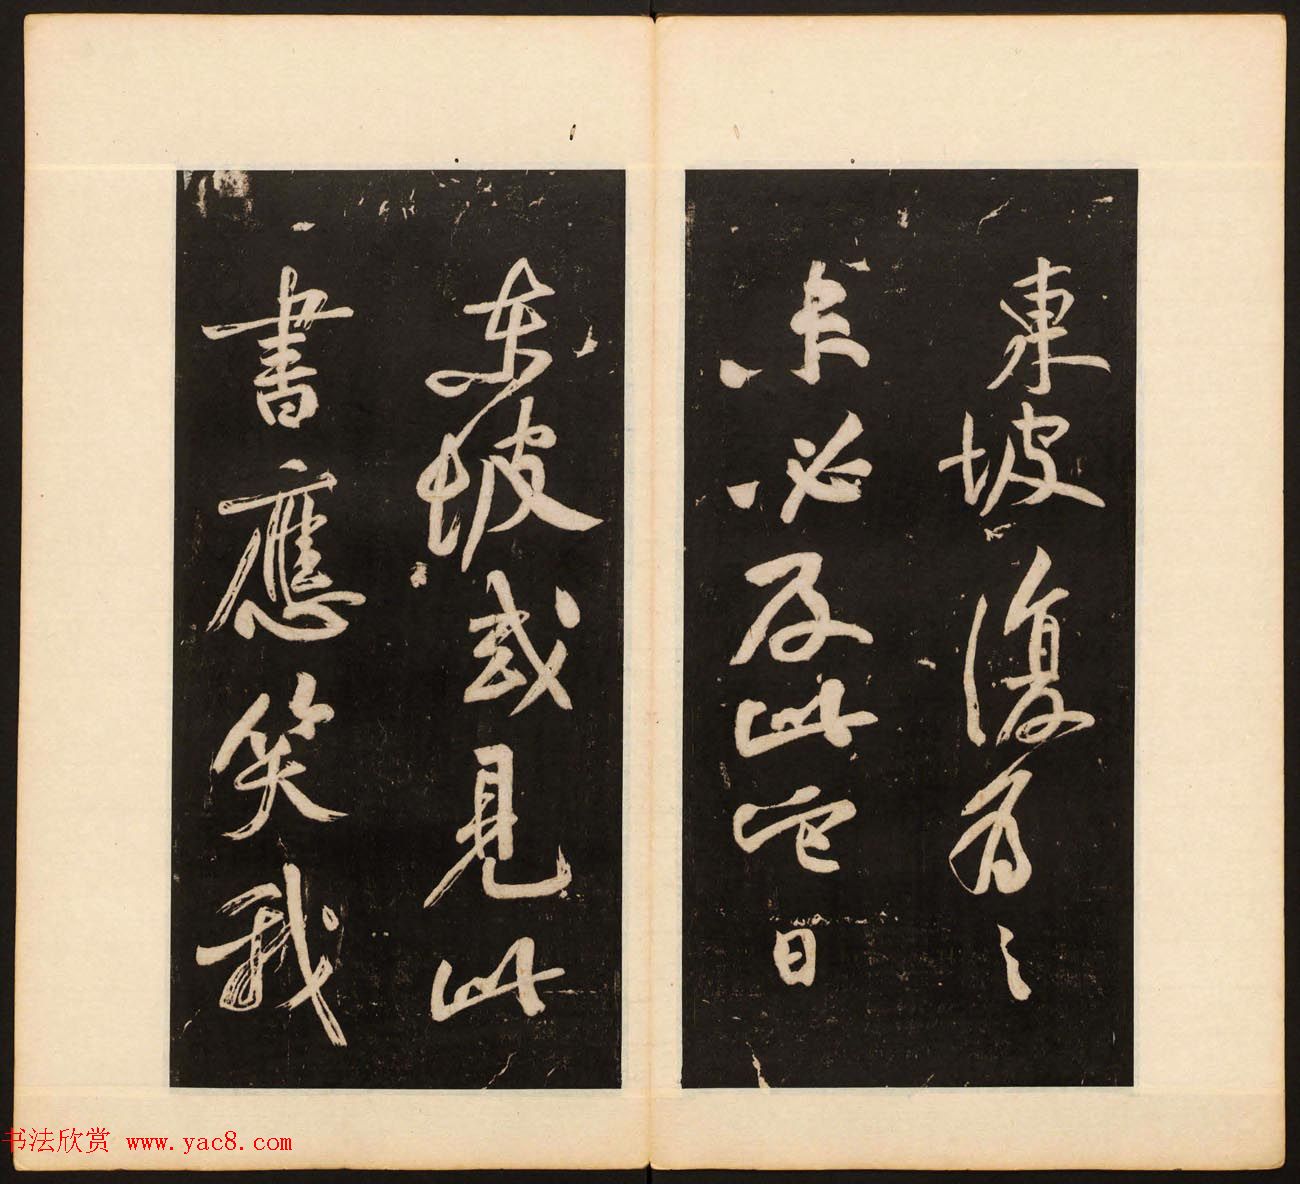 東坡復為之
未必及此它日
东坡或見此
書應笑我
书法欣赏 www.yac8.com